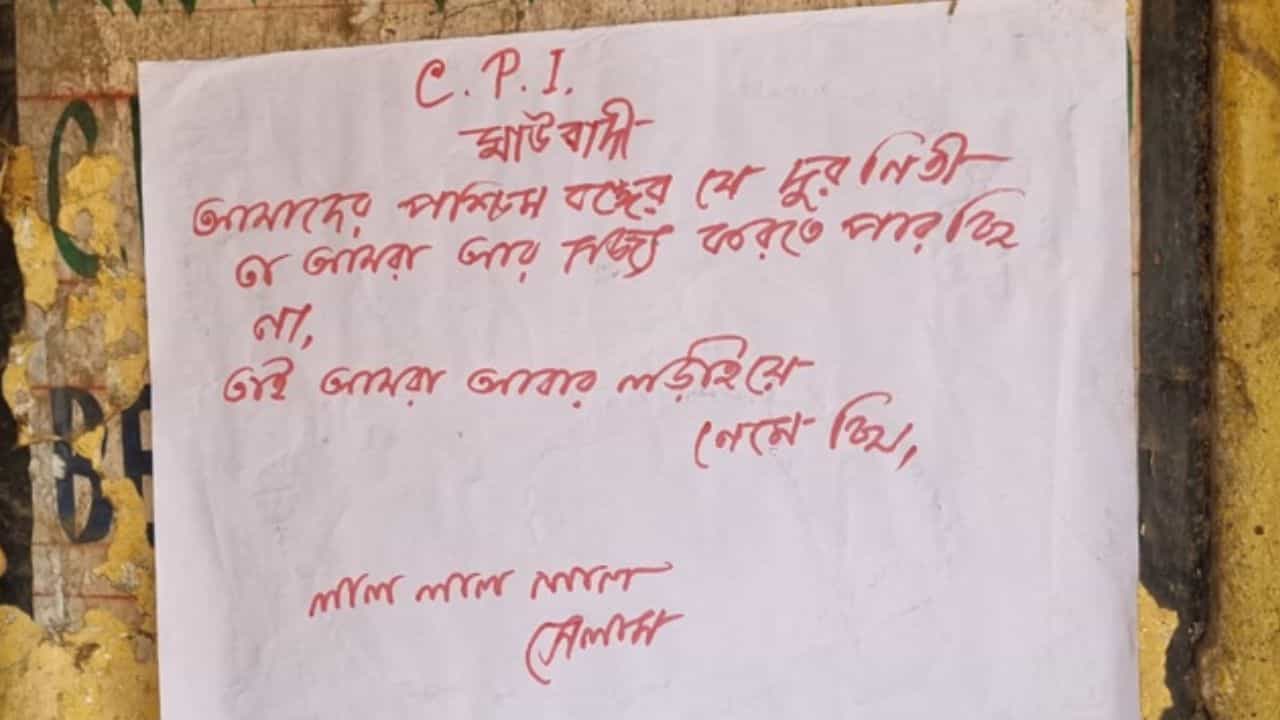 C.P.I.
মাউবাদী
আমাদের পশ্চিম বঙ্গের যে দুর নিতী
তা আমরা আর সজ্য করতে পারছি
না,
তাই আমরা আবার লড়াইয়ে
নেমেছি,
লাল লাল লাল
সেলাম